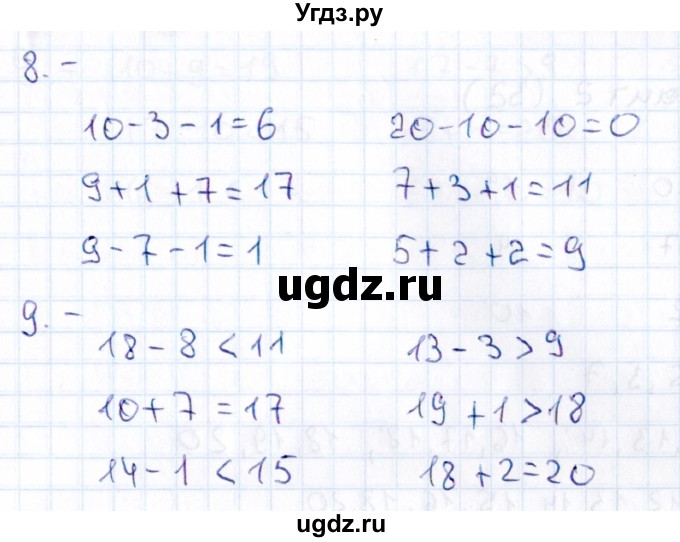 Угдз.ру
8. –
10 - 3 - 1 = 6 20 - 10 - 10 = 0
9 + 1 + 7 = 17 7 + 3 + 1 = 11
9 - 7 - 1 = 1 5 + 2 + 2 = 9
ugdz.ru
9. –
18 - 8 < 11 13 - 3 > 9
10 + 7 = 17 19 + 1 > 18
14 - 1 < 15 18 + 2 = 20
ugdz.ru